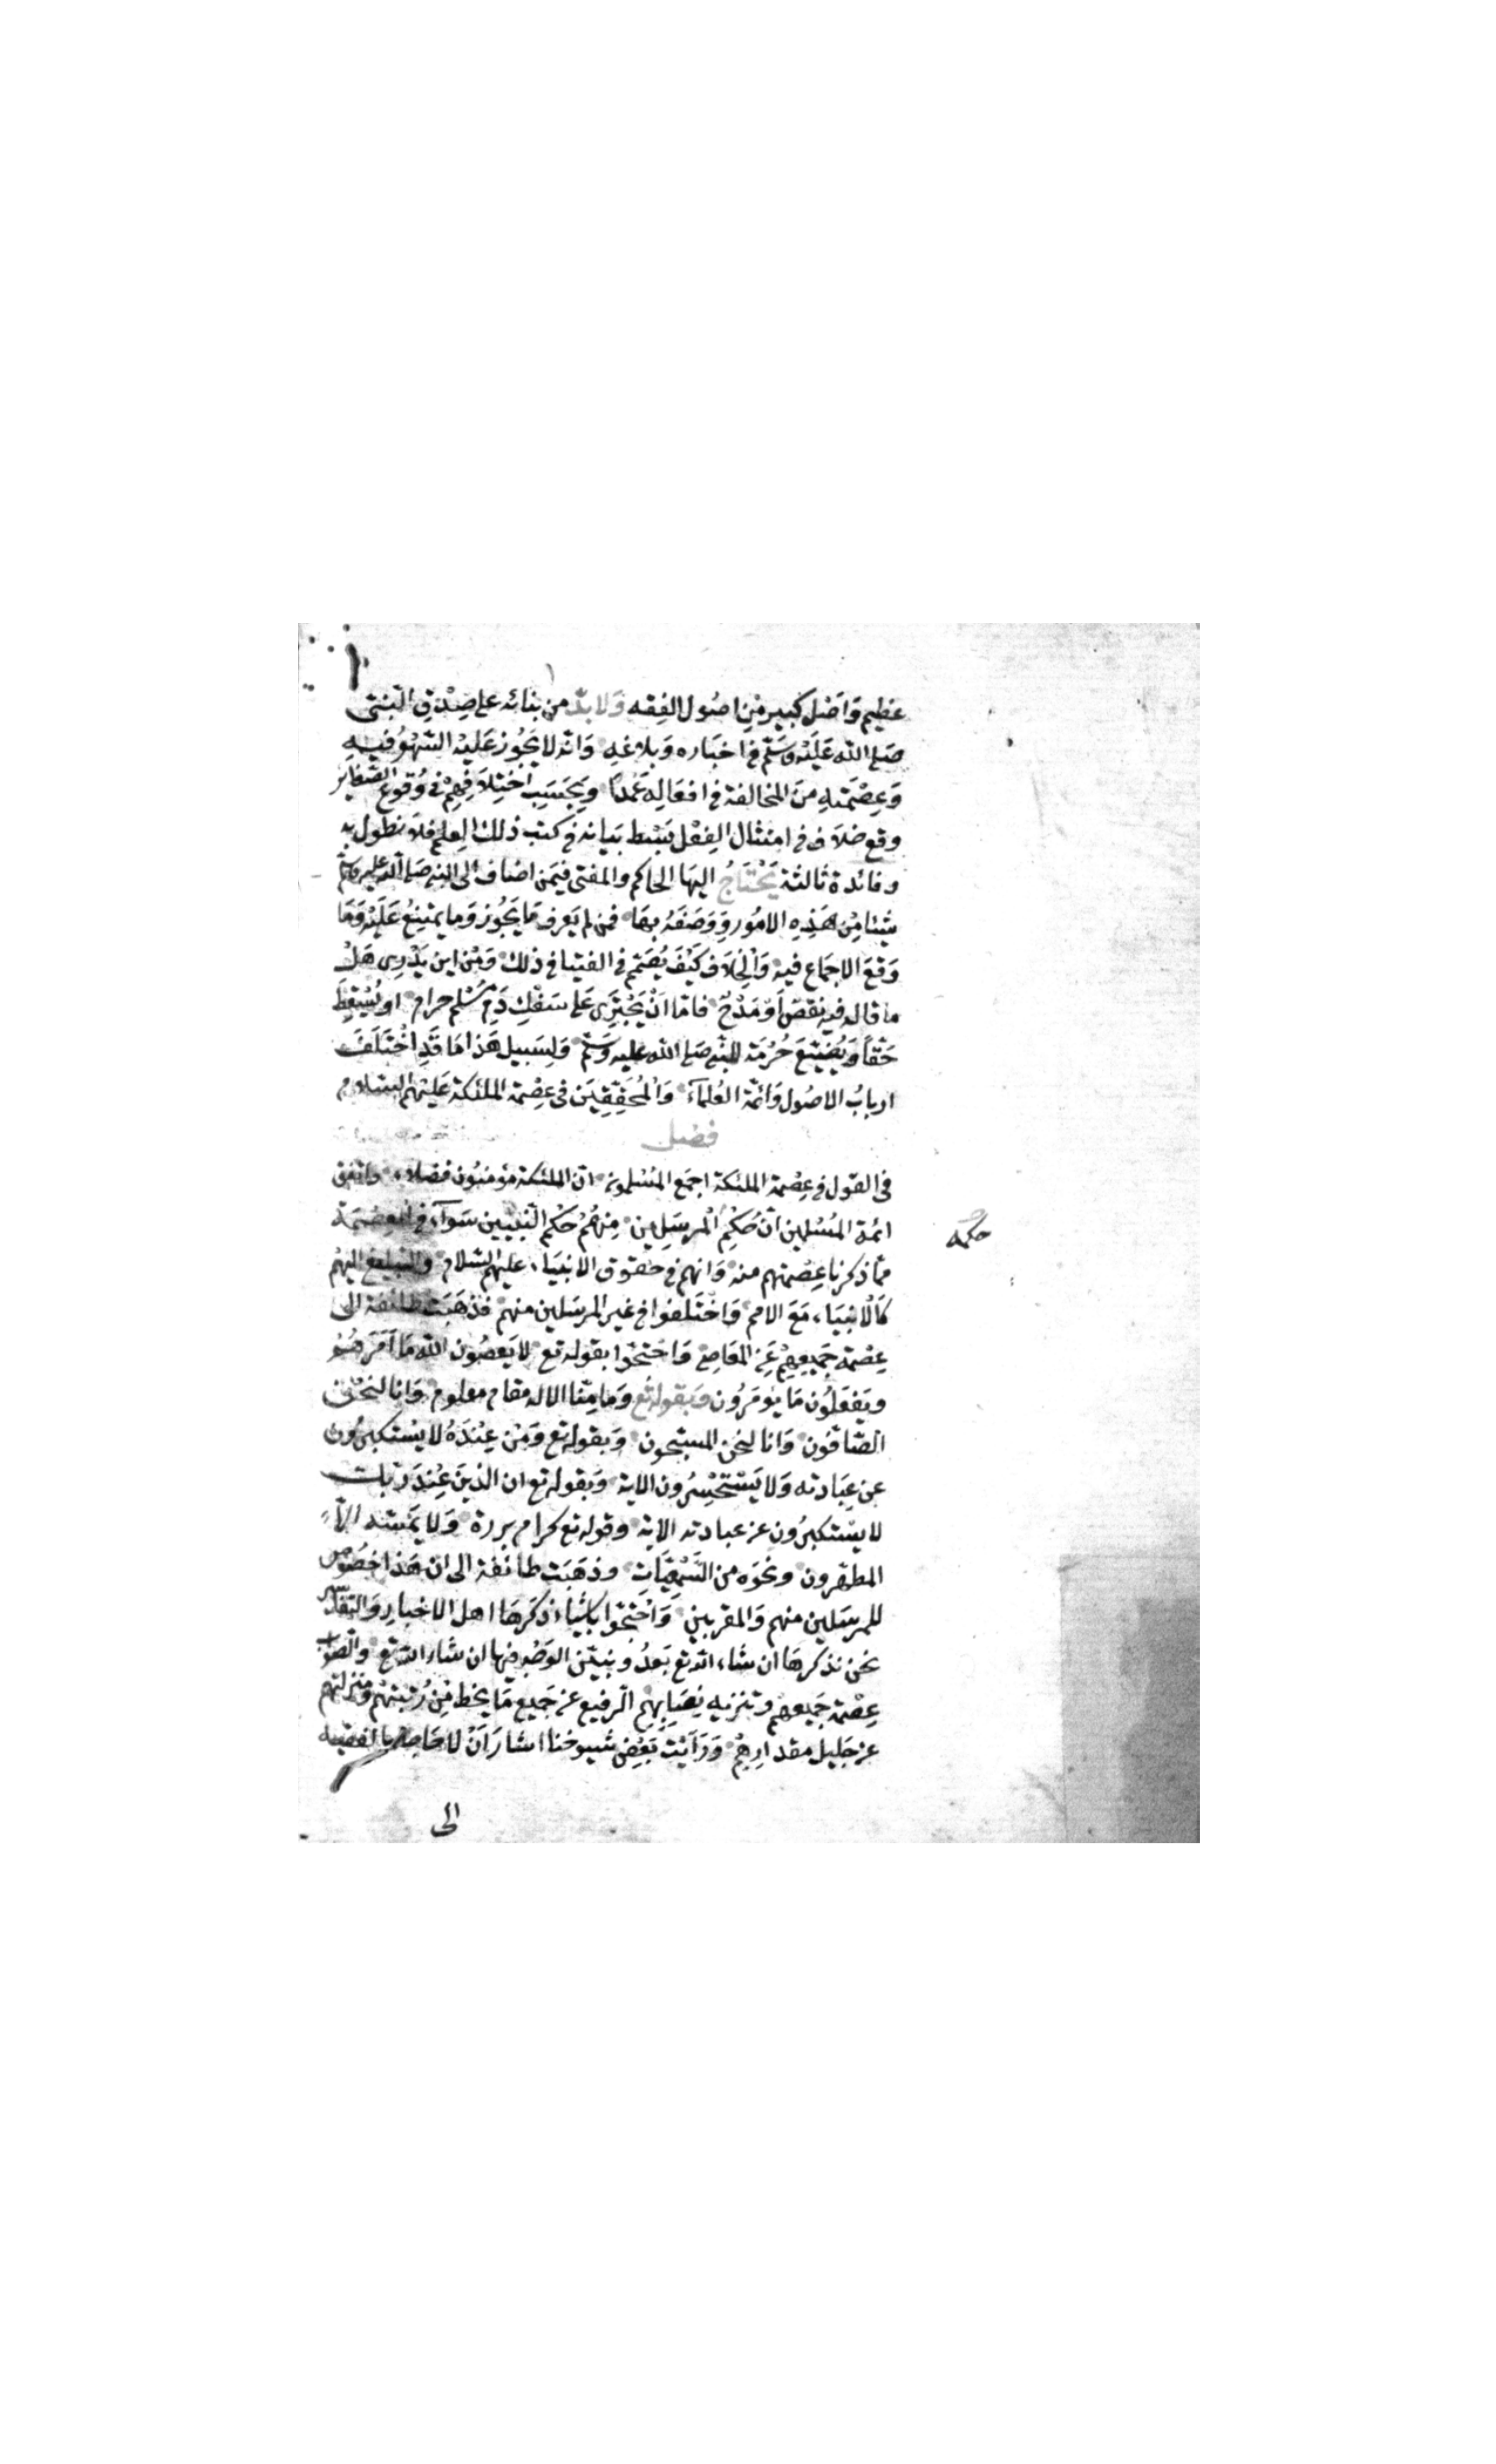 عظيم وَاَصْل كبير مِن اصُول الفِقه وَلَا بدّ من بنائه على صِدْق النّبىّ
صَلى الله عَلَيْهِ وَسَلّم فى اخبَاره وَبلاغهِ وَانّه لا يَجُوز عَلَيْه السّهْوُ فيهِ
وَعِصْمَتهِ مِنَ المخالفة فى افعَالِه عَمْدًا وَبِحَسَبِ اخْتِلَافِهِمْ فى وُقوع الصّغاير
وقع خلاف فى امتثال الفِعْل بَسْط بَيانه فى كتب ذلك العِلم فلَا نطول به
وفائدة ثالثة يَحْتَاجُ اليهَا الحاكم والمفتى فيمَن اضاف الى النبى صَلى الله عليه وسلم
شيئا مِنْ هَذِهِ الامُور وَوَصَفَهُ بهَا فمن لم يَعرف مَا يَجُوز وَما يمتنِعُ عَلَيْه وَمَا
وَقعَ الاجمَاع فيه وَالْخِلَاف كَيْفَ يُصَمّم فى الفتيا فى ذلك وَمِن اين يَدْرِى هَلْ
ما قاله فيه نقصٌ اَوْ مَدْحٌ فامّا اَنْ يَجْترِى عَلى سَفْكِ دَمِ مُسْلم حرام او يُسْقِطَ
حَقّا وَيُضَيّعَ حُرْمَة للنّبى صَلى الله عليه وسَلم وَلِسَبيل هَذا مَا قَدِ اخْتَلَفَ
اربابُ الاصُول وَائمّة العُلمآء وَالْمُحَقِّقِيَن فى عِصْمة الملئكة عَلَيْهم السّلام
فصْل
فى القول فى عِصْمة الملئكة اجمَع المُسْلمون انّ الملئكة مؤمنُون فُضلاء واتفق
ائمّة المُسْلمين انّ حُكمْ الْمرسَلين مِنْهُمْ حُكم النّبيّين سَوآء فى العِصْمَة
حكمه
ممّا ذكرنا عِصْمتهم منه وَانهم فى حقوق الانبيَاء عليهم السّلام والتبليغ اليهم
كَالْانبيَاء مَعَ الامم وَاخْتَلفوا فى غير المرسَلين منهم فذهَبَت طائفة الى
عِصْمة جَميعِهِمْ عَنِ المَعَاصِى وَاحْتجّوا بقوله تع لا يَعصُون الله مَا اَمَرَهُمْ
ويَفعَلُون مَا يؤمَرُون وَبقوله تع وَمَا مِنّا الا له مقام معلوم وَانا لنحْنُ
الصّافّون وَانا لنحن المسبّحون وَبقوله تع وَمَن عِنْدَهُ لا يسْتكبرُون
عن عِبَادته وَلا يَسْتَحْسِرُون الاية وَبقوله تع ان الذينَ عِندَ رَبّك
لا يسْتكبرُون عن عبادته الاية وقوله تع كرام بررة وَلا يَمسّه الّا
المطهّرون ونحوَه من السّمْعيَّات وذهَبَت طائفة الى انّ هَذا خصُوص
للمرسَلين منهم وَالمقرّبين وَاحْتجّوا باشْيَاء ذكرَهَا اهل الاخبار وَالتفاسير
نحن نذكرهَا ان شاء الله تع بَعدُ ونبيّن الوَجْه فيها ان شاء الله تع وَالصّوَاب
عِصْمة جَميعهم وتنزيه نِصَابِهِم الرفيع عن جَميع مَا يحط مِن رُتبتهم وَمنزلتهم
عن جَليل مقدارِهِمْ وَرَأيْت بَعْضَ شيوخنا اشارَ اَنْ لا حَاجة بالفقيه
الى